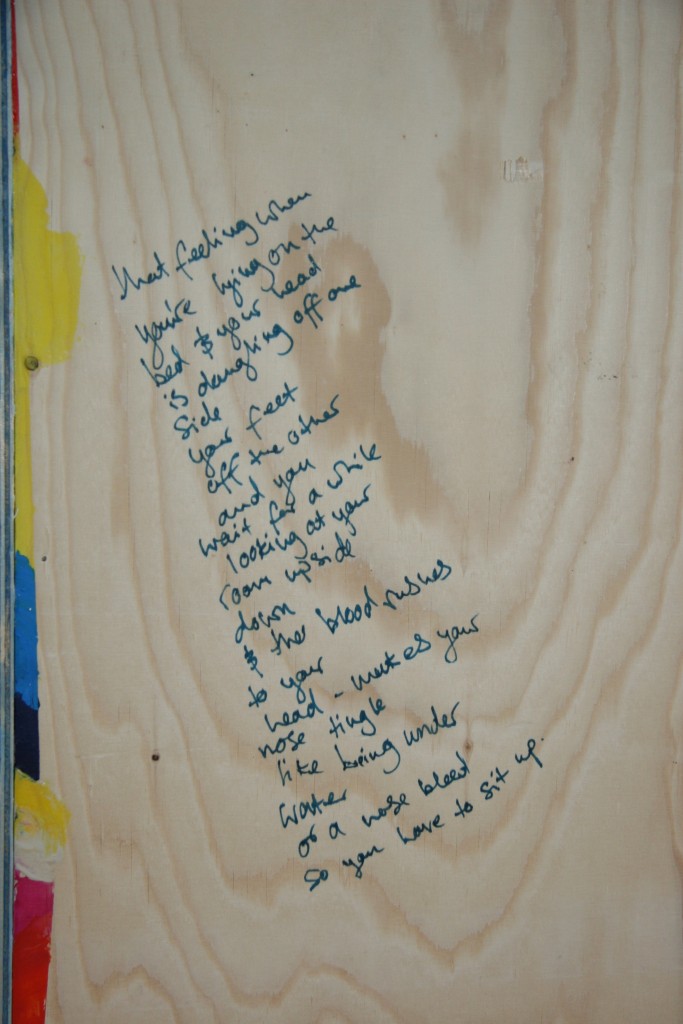 that feeling when
you're lying on the
bed & your head
is dangling off one
side
your feet
off the other
and you
wait for a while
looking at your
room upside
down
& the blood rushes
to your
head - makes your
nose tingle
like being under
water
or a nose bleed
so you have to sit up.